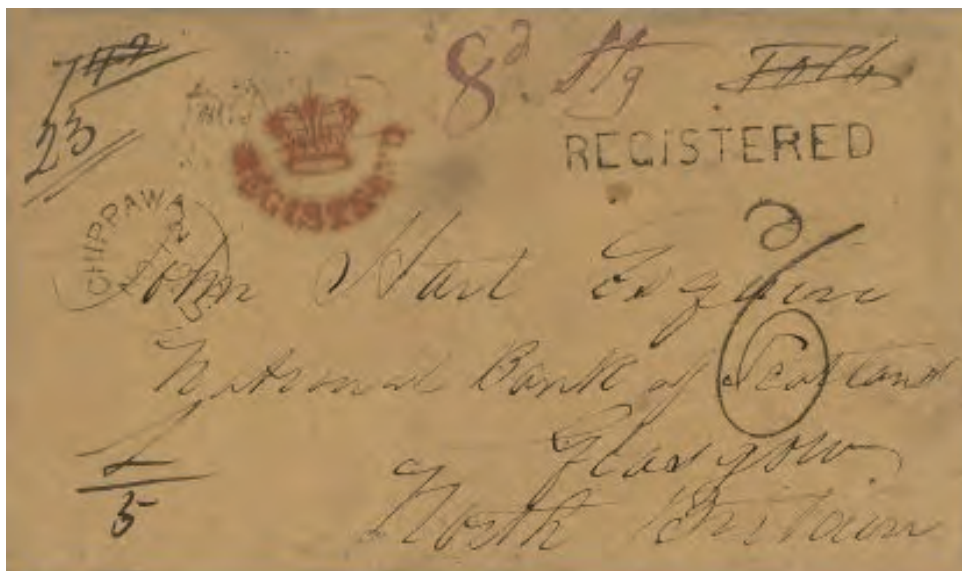 742
23
8d Stg
REGISTERED
REGISTERED
CHIPPAWA
John Hart Esquire
National Bank of Scotland
Glasgow
North Britain
5